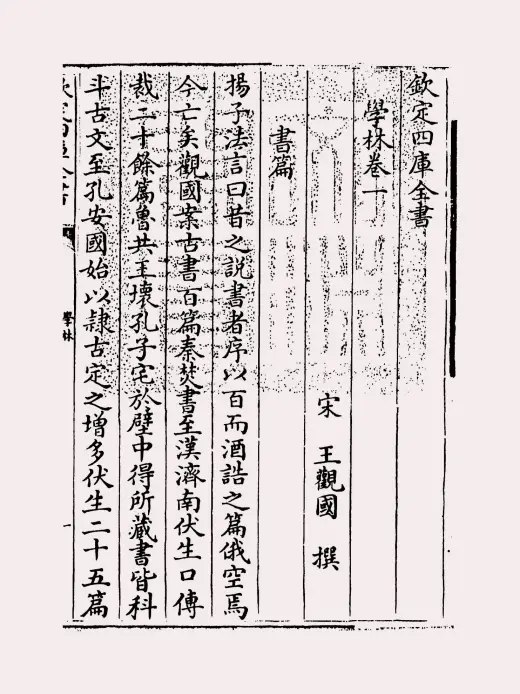 欽定四庫全書
學林卷一
宋 王觀國 撰
書篇
揚子法言曰昔之說書者序以百而酒誥之篇俄空焉
今亡矣觀國案古書百篇秦焚書至漢濟南伏生口傳
裁二十餘篇魯共王壞孔子宅於壁中得所藏書皆科
斗古文至孔安國始以隷古定之增多伏生二十五篇
欽定四庫全書
學林
一